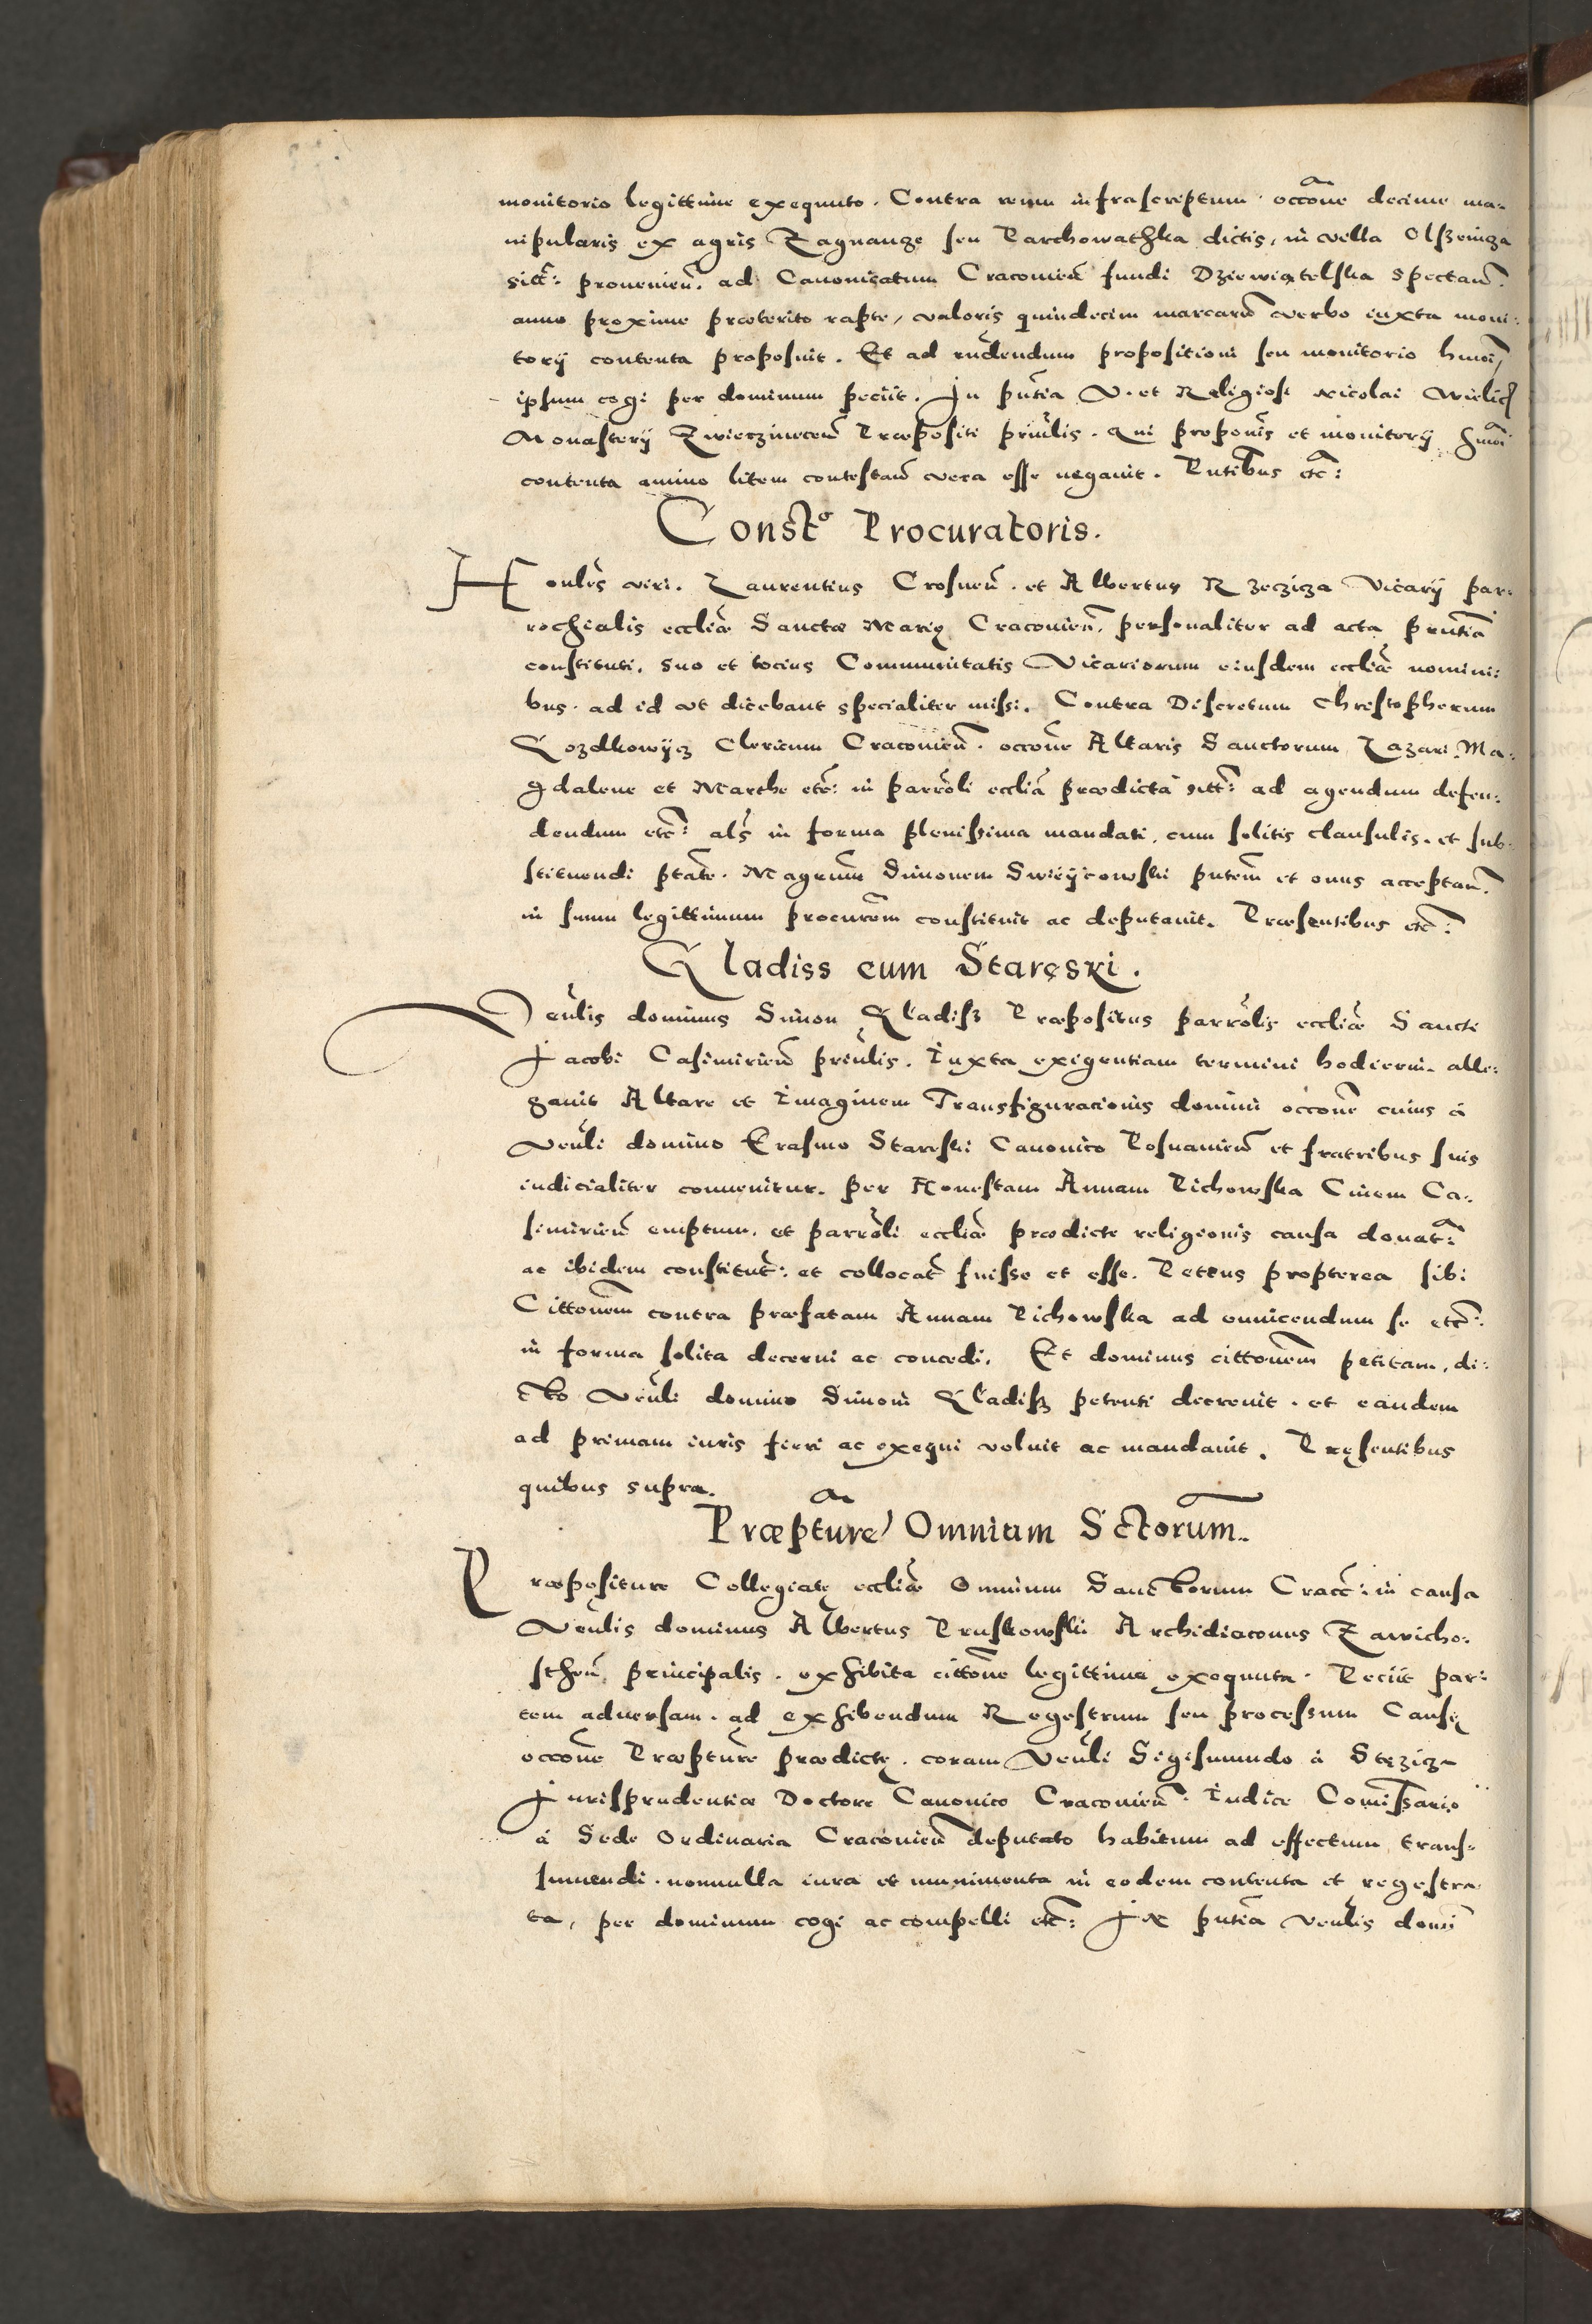 monitorio legittime exequuto. Contra reum infrascriptum occōne decime ma-
nipularis ex agris Zagnanze seu Parchowathka dictis, in villa Olszeinga
sitt: prouenieñ. ad Canonicatum Cracouieñ fundi Dziewiątelska spectañ.
anno proxime præterito rapte, valoris quindecim marcarū verbo iuxta moni:
torij contenta proposuit. Et ad rñdendum propositioni seu monitorio hmōi,
ipsum cogi per dominum peciit. In pñtia V. et Religiosi Nicolai Wielic
Monasterij Zwierzinecēn Præpositi prinĉlis. Qui propōnis et monitorij hmōi
contenta animo litem contestañ vera esse negauit. Pñtibus etc:
Const^o Procuratoris.
Honĉles viri. Laurentius Crosneñ. et Albertus Rzeczicza Vicarij par:
rochialis ecclīæ Sanctæ Marię Cracouieñ. personaliter ad acta prñtia
constituti, suo et tocius Communitatis Vicariorum eiusdem ecclīæ nomini:
bus. ad id vt dicebant specialiter missi. Contra Discretum Christopherum
Gozdkowijcz Clericum Cracouieñ. occōne Altaris Sanctorum Lazari, Ma:
gdalene et Marthe etc: in parrōli ecclīa prædicta sitt: ad agendum defen:
dendum etc: als in forma plenissima mandati, cum solitis clausulis. et sub:
stituendi ptāte. Magrum Simonem Swieijcowski pñtem et onus acceptañ.
in suum legittimum procurōem constituit ac deputauit. Præsentibus etc:
Gladiss cum Staręski.
Venĉlis dominus Simon Gladisz Præpositus parrōlis ecclīæ Sancti
Jacobi Casimirieñ prinĉlis. Iuxta exigentiam termini hodierni. alle:
gauit Altare et Imaginem Transfiguracionis domini occōne cuius à
Venĉli domino Erasmo Stareski Canonico Posnanieñ et fratribus suis
iudicialiter conuenitur. per Honestam Annam Pichowska Ciuem Ca:
simirieñ emptum, et parrōli ecclīæ prædicte religionis causa donat:
ac ibidem constitut: et collocat fuisse et esse. Petens propterea sibi
Cittōnem contra præfatam Annam Pichowska ad euincendum se etc:
in forma solita decerni ac concedi. Et dominus cittōnem petitam, di:
cto Venĉli domino Simoni Gladisz petenti decreuit. et eandem
ad primam iuris fieri ac exequi voluit ac mandauit. Pręsentibus
quibus supra.
Præptūre Omnium Sctorum.
Præpositure Collegiatę ecclīæ Omnium Sanctorum Cracc: in causa
Venĉlis dominus Albertus Pruskowski Archidiaconus Zawicho:
stheñ principalis. exhibita cittōne legittime exequuta. Peciit par:
tem aduersam. ad exhibendum Regestrum seu processum Causę
occōne Præptūre prædictę. coram Venĉli Sigismundo à Stęzicza
Jurisprudentiæ Doctore Canonico Cracouieñ. Iudice Comissario
à Sede Ordinaria Cracouieñ deputato habitum ad effectum trans:
sumendi. nonnulla iura et munimenta in eodem contenta et regestra:
ta, per dominum cogi ac compelli etc: In pñtia venĉlis domi